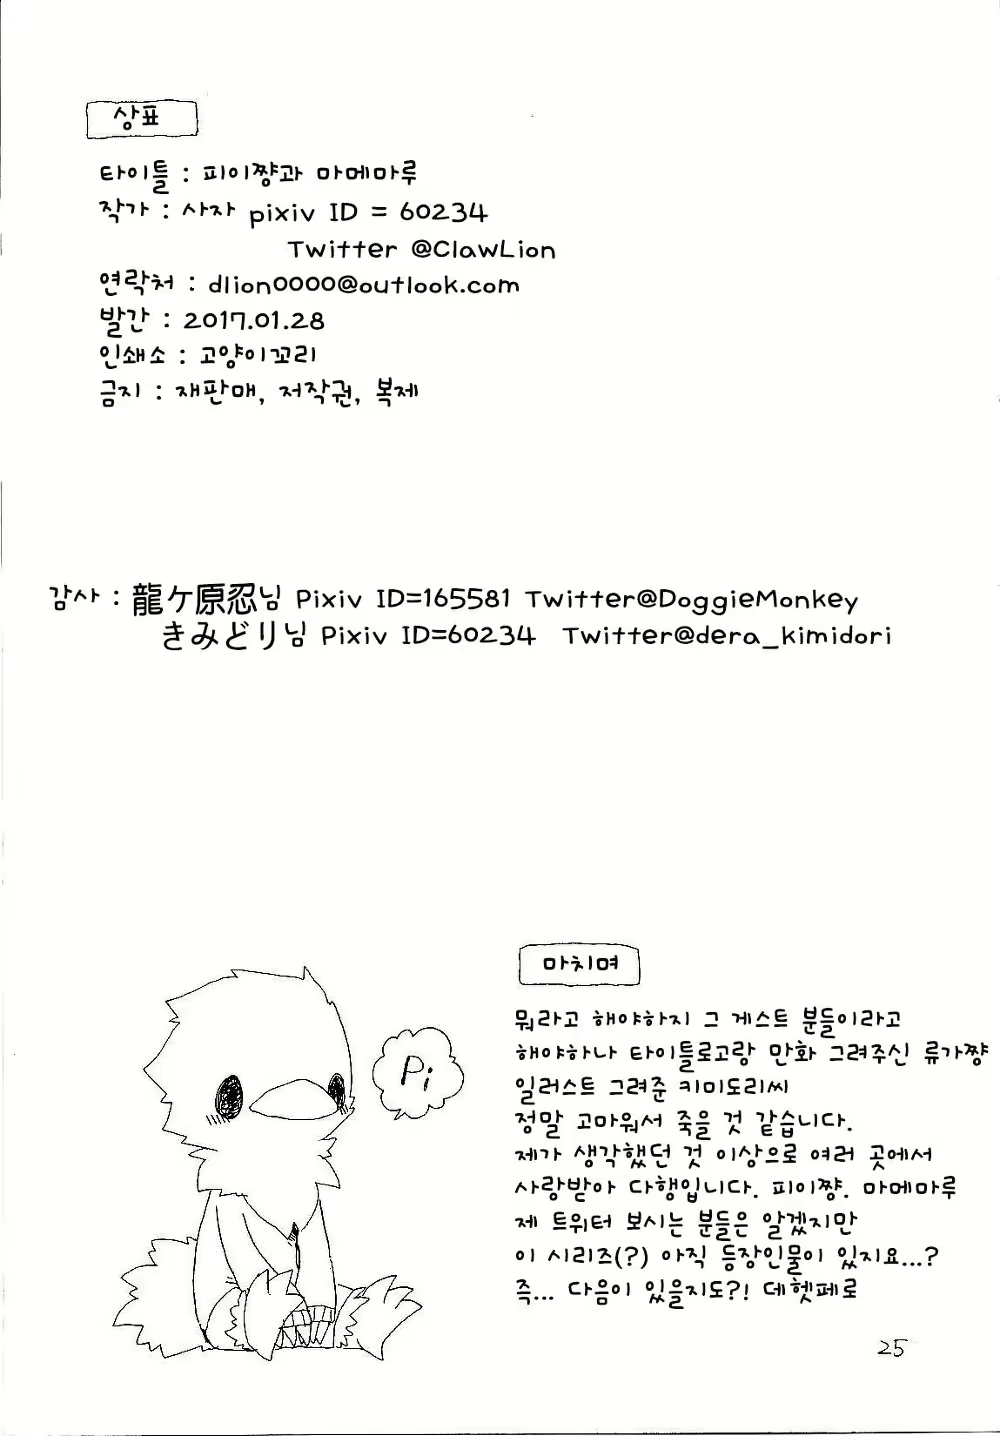 상표
타이틀 : 피이쨩과 마메마루
작가 : 사자 pixiv ID = 60234
Twitter @ClawLion
연락처 : dlion0000@outlook.com
발간 : 2017.01.28
인쇄소 : 고양이꼬리
금지 : 재판매, 저작권, 복제
감사 : 龍ケ原忍님 Pixiv ID=165581 Twitter@DoggieMonkey
きみどり님 Pixiv ID=60234 Twitter@dera_kimidori
Pi
마치며
뭐라고 해야하지 그 게스트 분들이라고
해야하나 타이틀로고랑 만화 그려주신 류가쨩
일러스트 그려준 키미도리씨
정말 고마워서 죽을 것 같습니다.
제가 생각했던 것 이상으로 여러 곳에서
사랑받아 다행입니다. 피이쨩. 마메마루
제 트위터 보시는 분들은 알겠지만
이 시리즈(?) 아직 등장인물이 있지요...?
즉... 다음이 있을지도?! 데헷페로
25